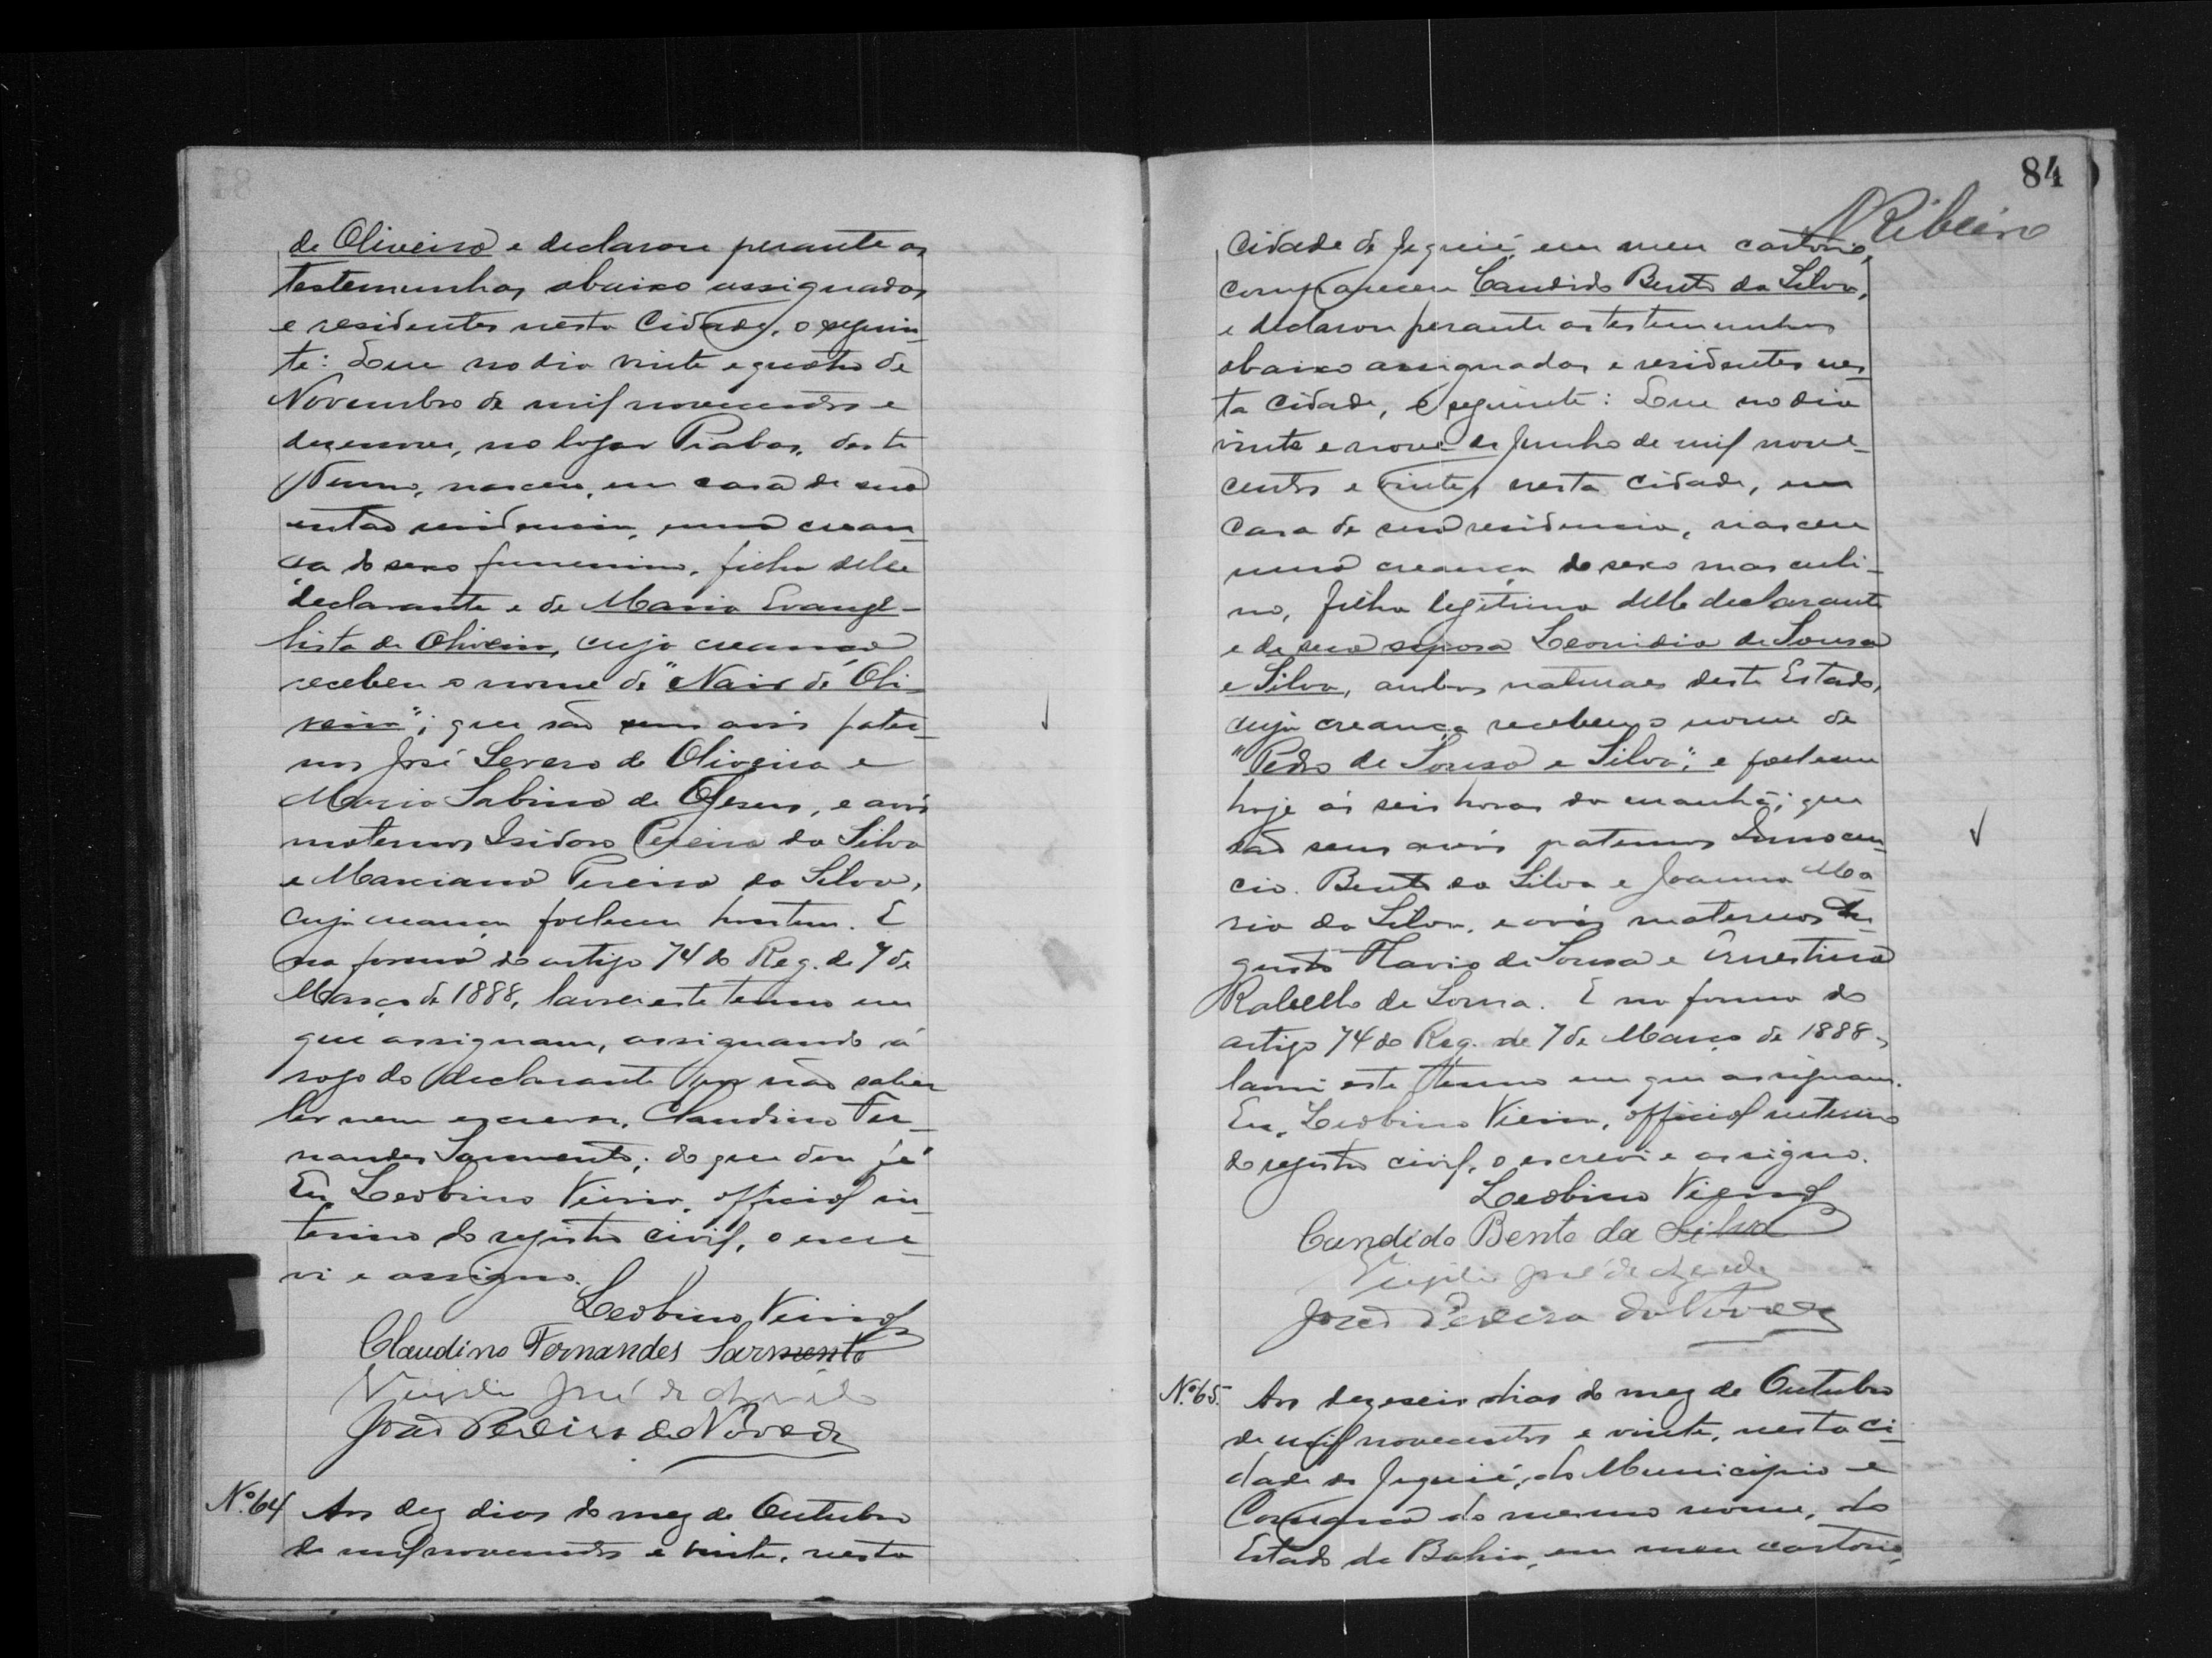 de Oliveira e declarou perante as
testemunhas abaixo assignadas
e residentes nesta Cidade, o seguin-
te: Que no dia vinte e quatro de
Novembro de mil novecentos e
dezenove, no logar Piabas, deste
Termo, nasceu, em casa de sua
então residencia, uma crean-
ça do sexo femenino, filha delle
declarante e de Maria Evange-
lista de Oliveira, cuja creança
recebeu o nome de "Nair de Oli-
veira"; que são seus avós pater-
nos José Severo de Oliveira e
Maria Sabina de Jesus, e avós
maternos Isidoro Pereira da Silva
e Marciana Pereira da Silva,
cuja creança falleceu hontem. E
na forma do artigo 74 do Reg. de 7 de
Março de 1888, lavrei este termo em
que assignam, assignando á
rogo do declarante por não saber
ler nem escrever, Claudino Fer-
nandes Sarmento; do que dou fé
Eu, Leobino Vieira, official in-
terino do registro civil, o escre-
vi e assigno.
Leobino Vieira
Claudino Fernandes Sarmento
Virgilio José de
João Pereira de Novaes
Nº 64 Aos dez dias do mez de Outubro
de mil novecentos e vinte, nesta
84
ARibeiro
Cidade de Jequié, em meu cartorio,
compareceu Candido Bento da Silva,
e declarou perante as testemunhas
abaixo assignadas e residentes nes-
ta cidade, o seguinte: Que no dia
vinte e nove de Junho de mil nove-
centos e vinte, nesta cidade, em
casa de sua residencia, nasceu
uma creança do sexo masculi-
no, filha legitima delle declarante
e de sua esposa Leonidia de Sousa
e Silva, ambos naturaes deste Estado,
cuja creança recebeu o nome de
"Pedro de Sousa e Silva"; e falleceu
hoje ás seis horas da manhã; que
são seus avós paternos Innocen-
cio Bento da Silva e Joanna Ma-
ria da Silva, e avós maternos Au-
gusto Flavio de Sousa e Ernestina
Rabello de Sousa. E na forma do
artigo 74 do Reg. de 7 de Março de 1888,
lavrei este termo em que assignam.
Eu, Leobino Vieira, official interino
do registro civil, o escrevi e assigno.
Leobino Vieira
Candido Bento da Silva
Virgilio José de
João Pereira de Novaes
Nº 65. Aos dezeseis dias do mez de Outubro
de mil novecentos e vinte, nesta ci-
dade de Jequié, do Municipio e
Comarca do mesmo nome, do
Estado da Bahia, em meu cartorio,